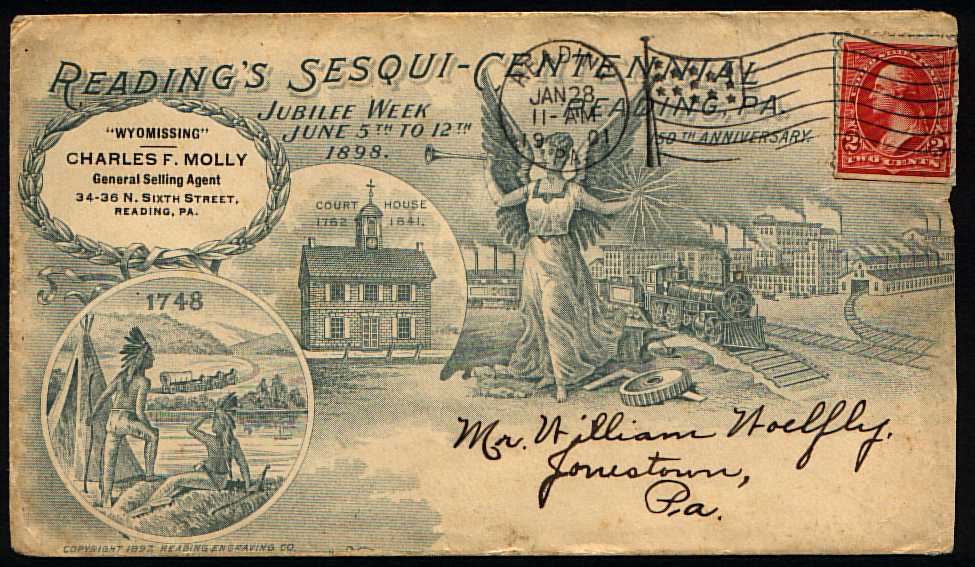 READING'S SESQUI-CENTENNIAL
JUBILEE WEEK
JUNE 5TH TO 12TH
1898.
READING, PA.
150TH ANNIVERSARY.
"WYOMISSING"
CHARLES F. MOLLY
General Selling Agent
34-36 N. SIXTH STREET,
READING, PA.
READING
JAN 28
11-AM
1901
PA.
2 2
TWO CENTS
COURT HOUSE
1762 1841.
1748
Mr. William Woelfly.
Jonestown,
Pa.
COPYRIGHT 1897. READING ENGRAVING CO.